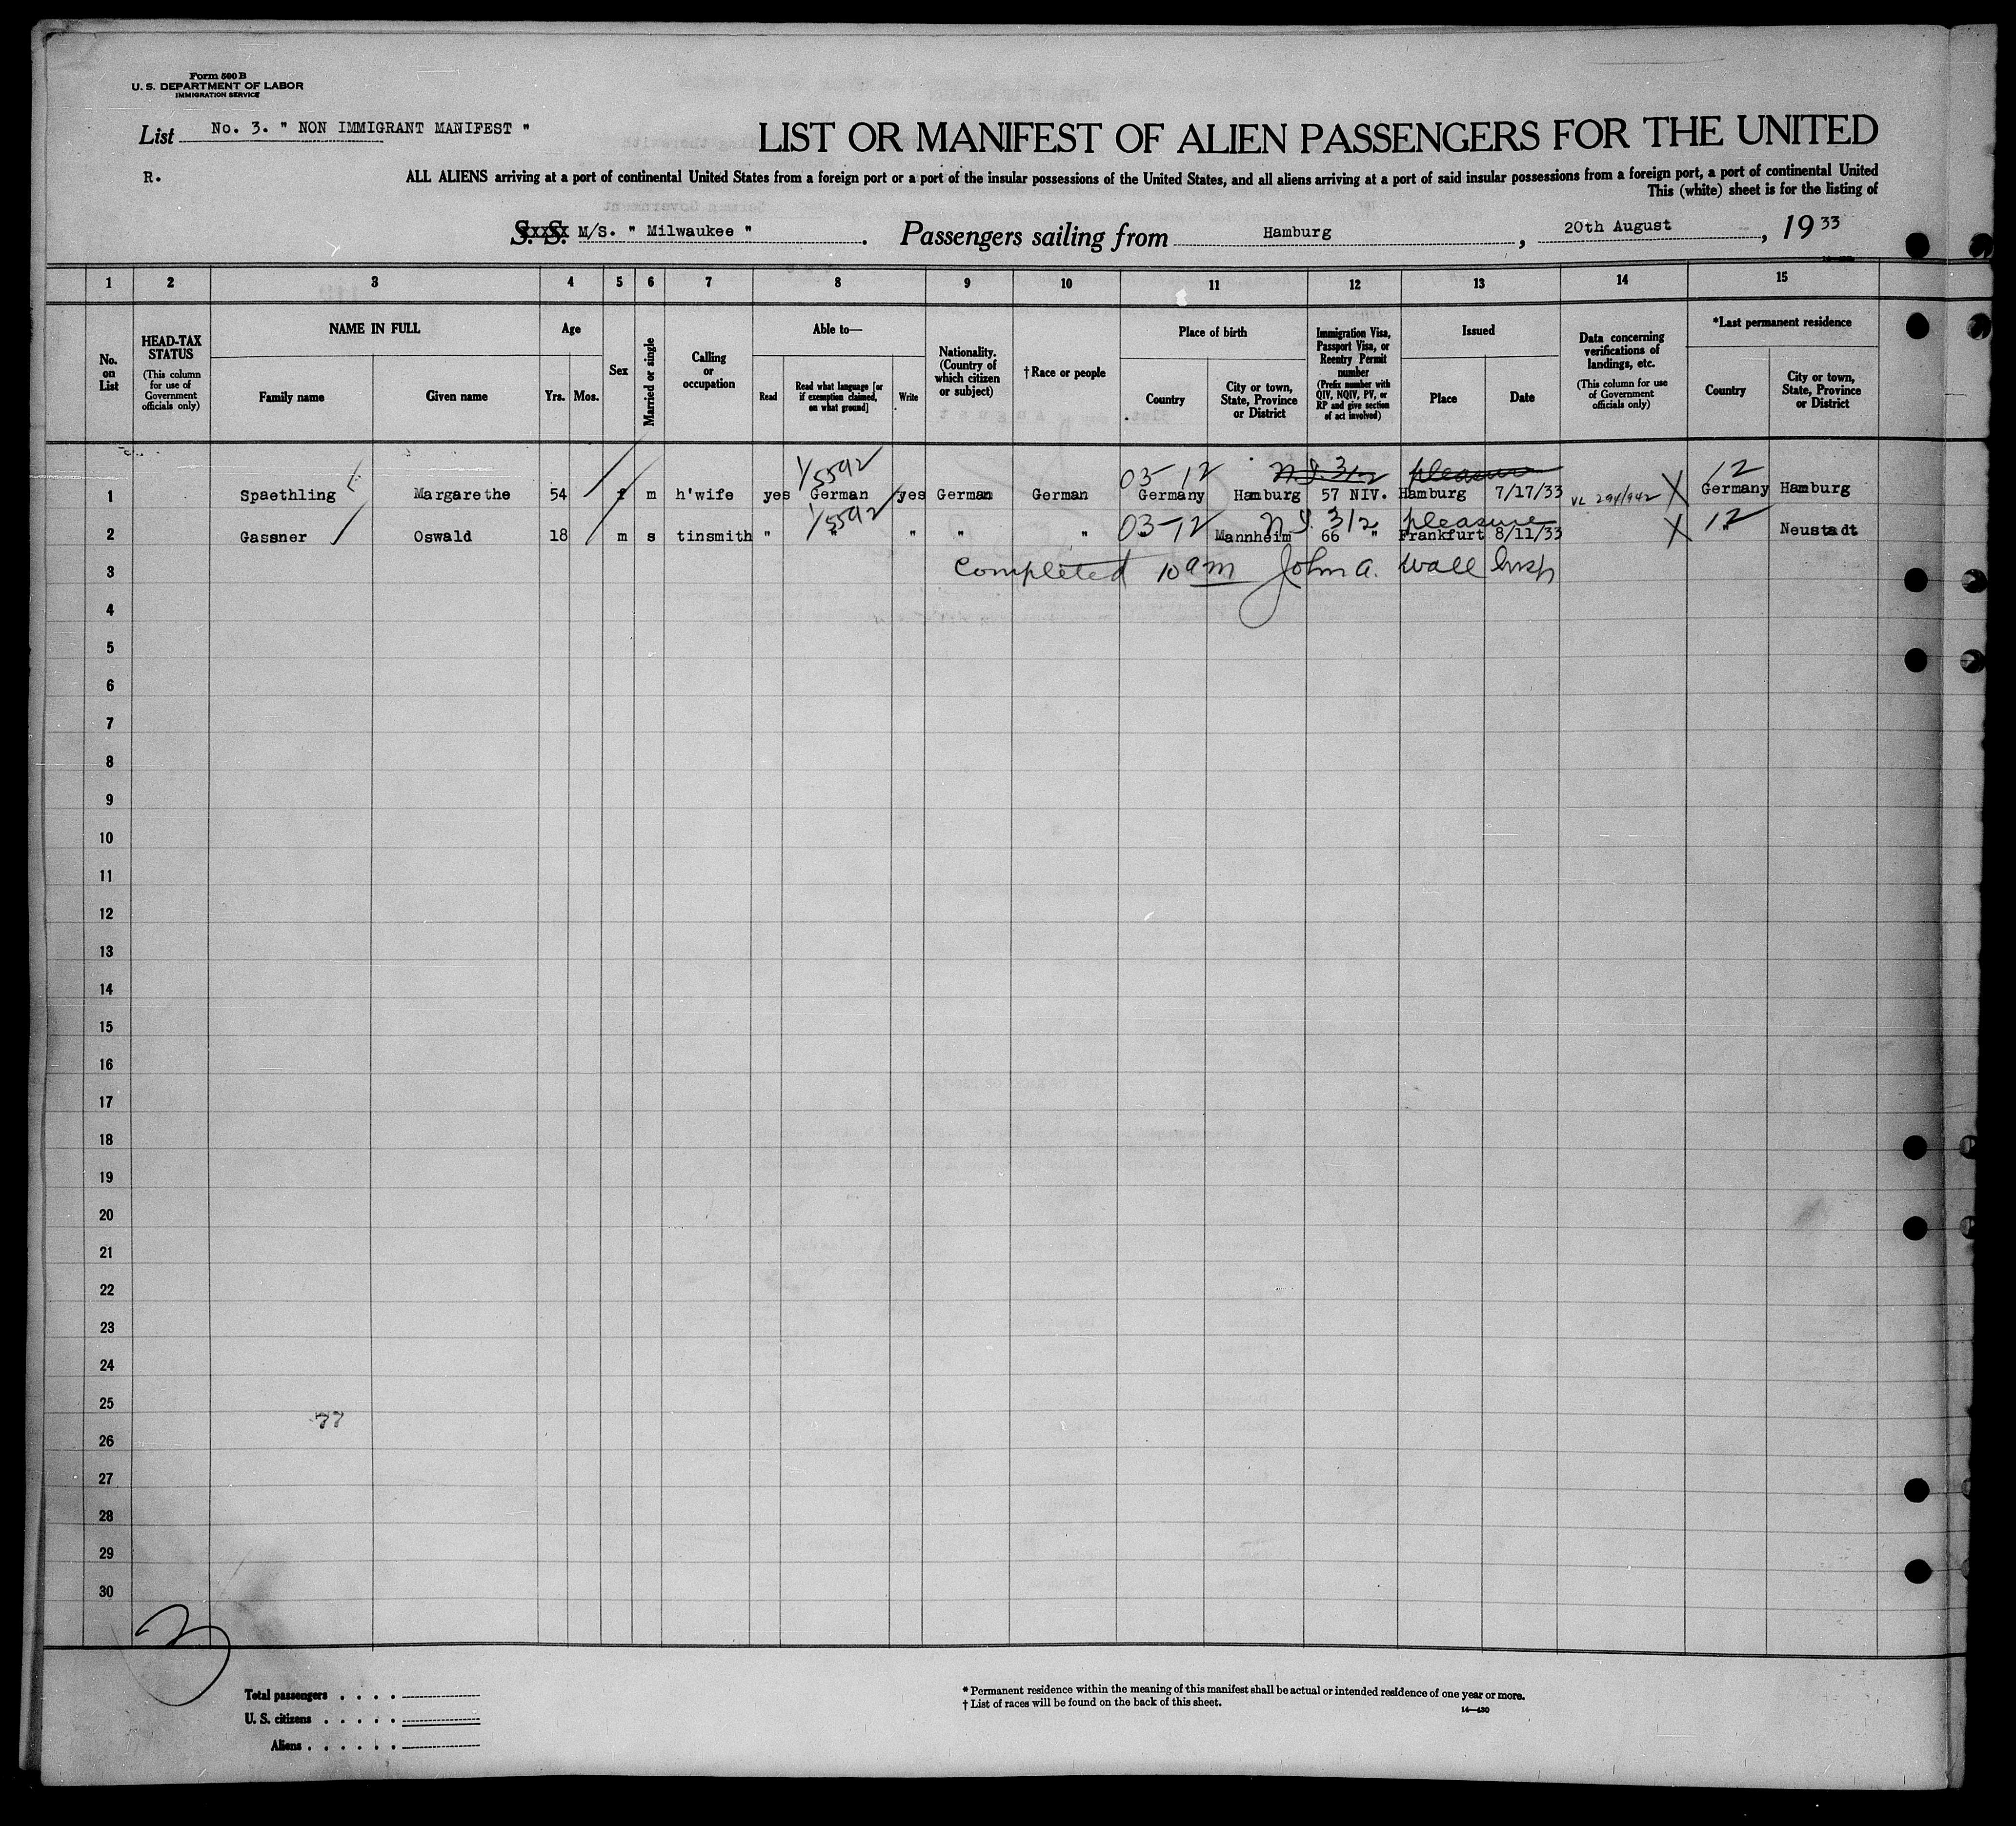 Form 500 B
U. S. DEPARTMENT OF LABOR
IMMIGRATION SERVICE
List No. 3. " NON IMMIGRANT MANIFEST "
R.
LIST OR MANIFEST OF ALIEN PASSENGERS FOR THE UNITED
ALL ALIENS arriving at a port of continental United States from a foreign port or a port of the insular possessions of the United States, and all aliens arriving at a port of said insular possessions from a foreign port, a port of continental United
This (white) sheet is for the listing of
S. S. M/S. " Milwaukee " . Passengers sailing from Hamburg , 20th August , 19 33
1 2 3 4 5 6 7 8 9 10 11 12 13 14 15
No. on List
HEAD-TAX STATUS
(This column for use of Government officials only)
NAME IN FULL
Family name Given name
Age
Yrs. Mos.
Sex
Married or single
Calling or occupation
Able to—
Read
Read what language [or if exemption claimed, on what ground]
Write
Nationality. (Country of which citizen or subject)
†Race or people
Place of birth
Country
City or town, State, Province or District
Immigration Visa, Passport Visa, or Reentry Permit number
(Prefix number with QIV, NQIV, PV, or RP and give section of act involved)
Issued
Place Date
Data concerning verifications of landings, etc.
(This column for use of Government officials only)
*Last permanent residence
Country
City or town, State, Province or District
1/5592 03-12 pleasure 12
1 Spaethling Margarethe 54 f m h'wife yes German yes German German Germany Hamburg 57 NIV. Hamburg 7/17/33 VL 294/942 X Germany Hamburg
1/5592 03-12 312 pleasure 12
2 Gassner Oswald 18 m s tinsmith " " " " " " Mannheim 66 " Frankfurt 8/11/33 X " Neustadt
3 Completed 10 am John A. Wall Insp
4
5
6
7
8
9
10
11
12
13
14
15
16
17
18
19
20
21
22
23
24
25
77
26
27
28
29
30
3
Total passengers . . . .
U. S. citizens . . . . .
Aliens . . . . . .
* Permanent residence within the meaning of this manifest shall be actual or intended residence of one year or more.
† List of races will be found on the back of this sheet.
14—430